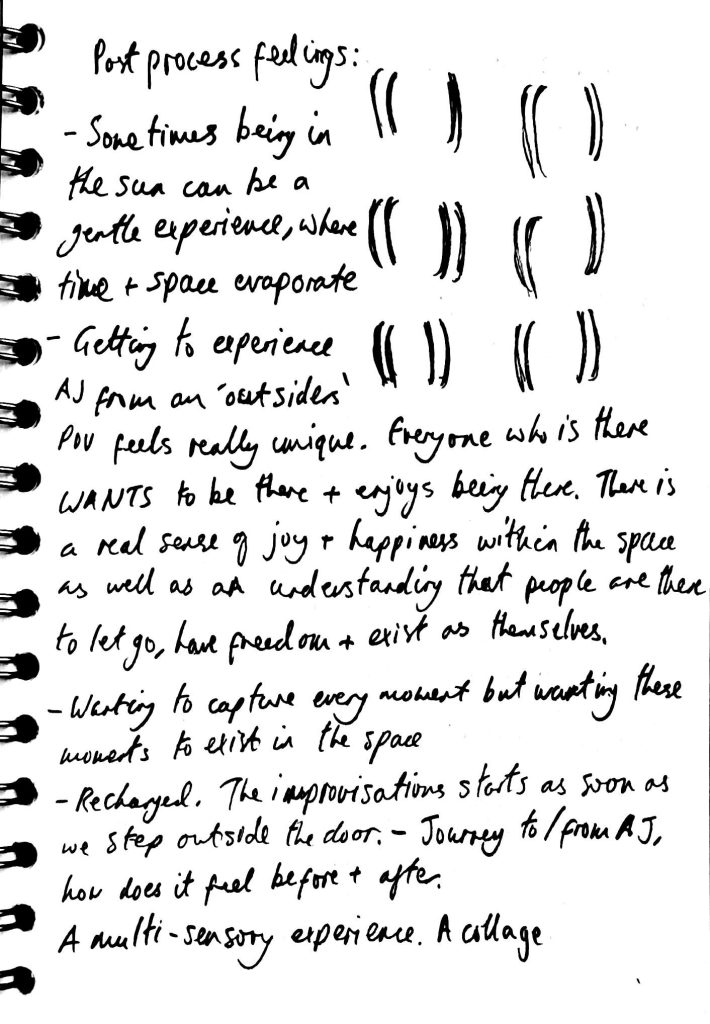 Post process feelings:
- Sometimes being in
the sun can be a
gentle experience, where
time + space evaporate
- Getting to experience
AJ from an 'outsiders'
POV feels really unique. Everyone who is there
WANTS to be there + enjoys being there. There is
a real sense of joy + happiness within the space
as well as an understanding that people are there
to let go, have freedom + exist as themselves.
- Wanting to capture every moment but wanting these
moments to exist in the space
- Recharged. The improvisations starts as soon as
we step outside the door. - Journey to/from AJ,
how does it feel before + after.
A multi-sensory experience. A collage